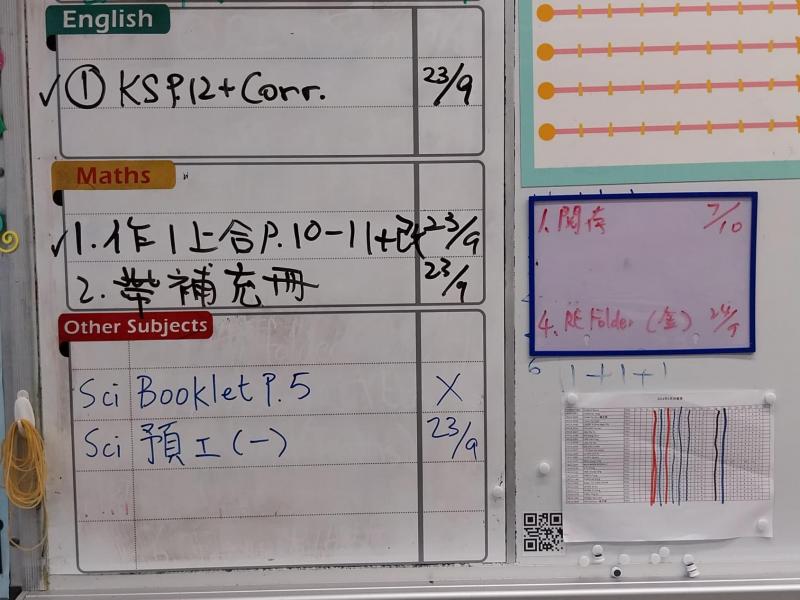 English
① KS P.12 + Corr. 23/9
Maths
1. 作1上合 P.10-11+改 23/9
2. 帶補充冊 23/9
Other Subjects
Sci Booklet P.5 X
Sci 預工(一) 23/9
1. 7/10
4. RE Folder (金) 24/9
1+1+1